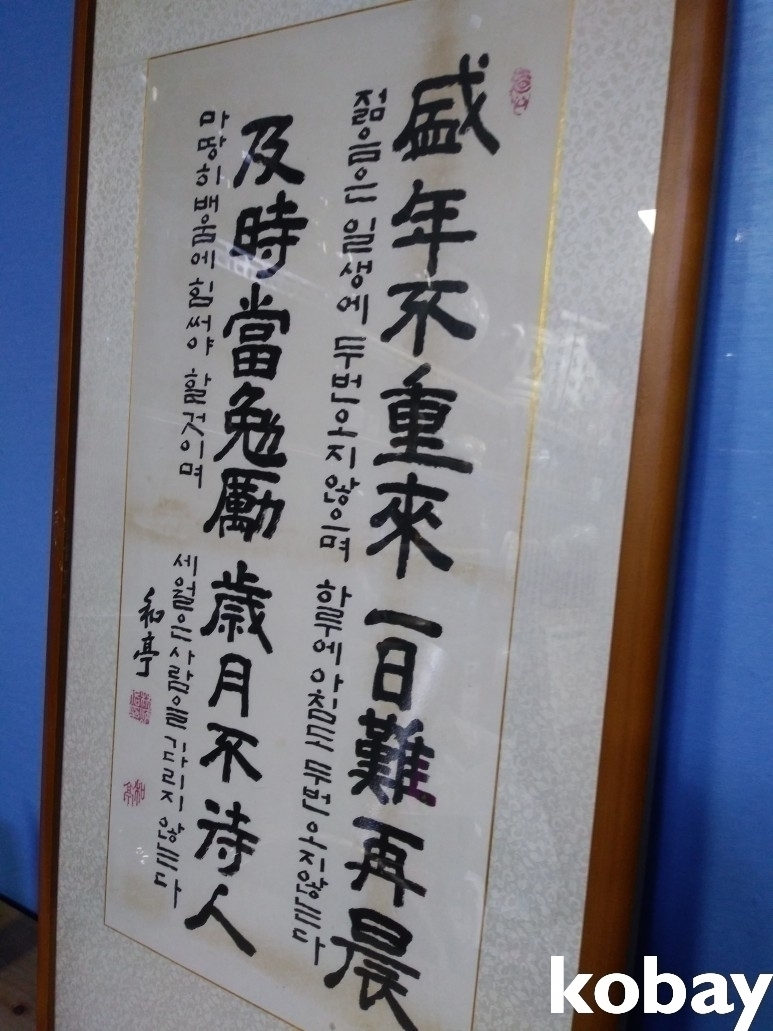 盛年不重來 一日難再晨
젊음은 일생에 두번오지 않으며 하루에 아침도 두번 오지않는다
及時當勉勵 歲月不待人
마땅히 배움에 힘써야 할것이며 세월은 사람을 기다리지 않는다
和亭
kobay